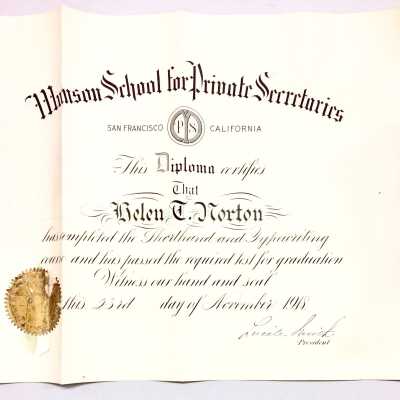 Munson School for Private Secretaries
SAN FRANCISCO CALIFORNIA
This Diploma certifies
That
Helen T. Norton
has completed the Shorthand and Typewriting
and has passed the required test for graduation
Witness our hand and seal
this 23rd day of November 1918
Lucile Smith
President